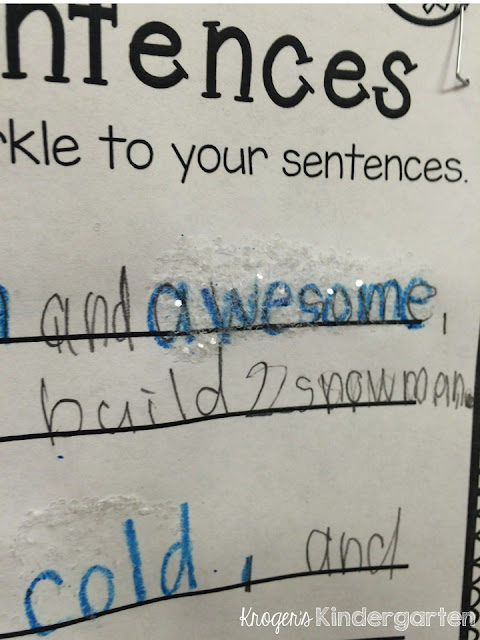 ntences
rkle to your sentences.
and awesome,
build snowman.
cold, and
Kroger's Kindergarten